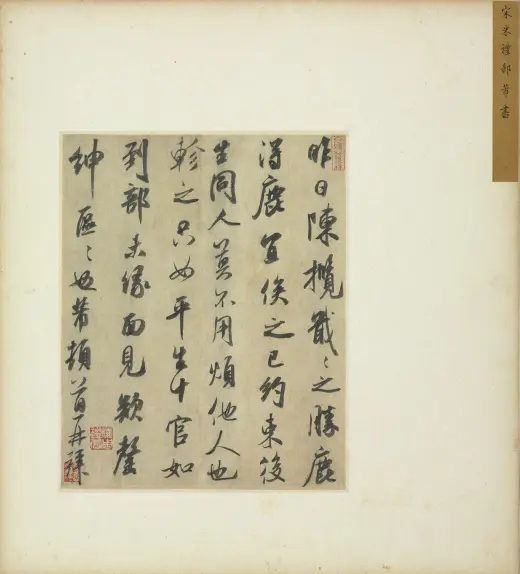 宋米禮部芾書
昨日陳攬戢戢之勝鹿
得鹿宜俟之已約束後
生同人莫不用煩他人也
軫之只如平生十官如
到部未緣面見欵罄
紳區區也芾頓首再拜